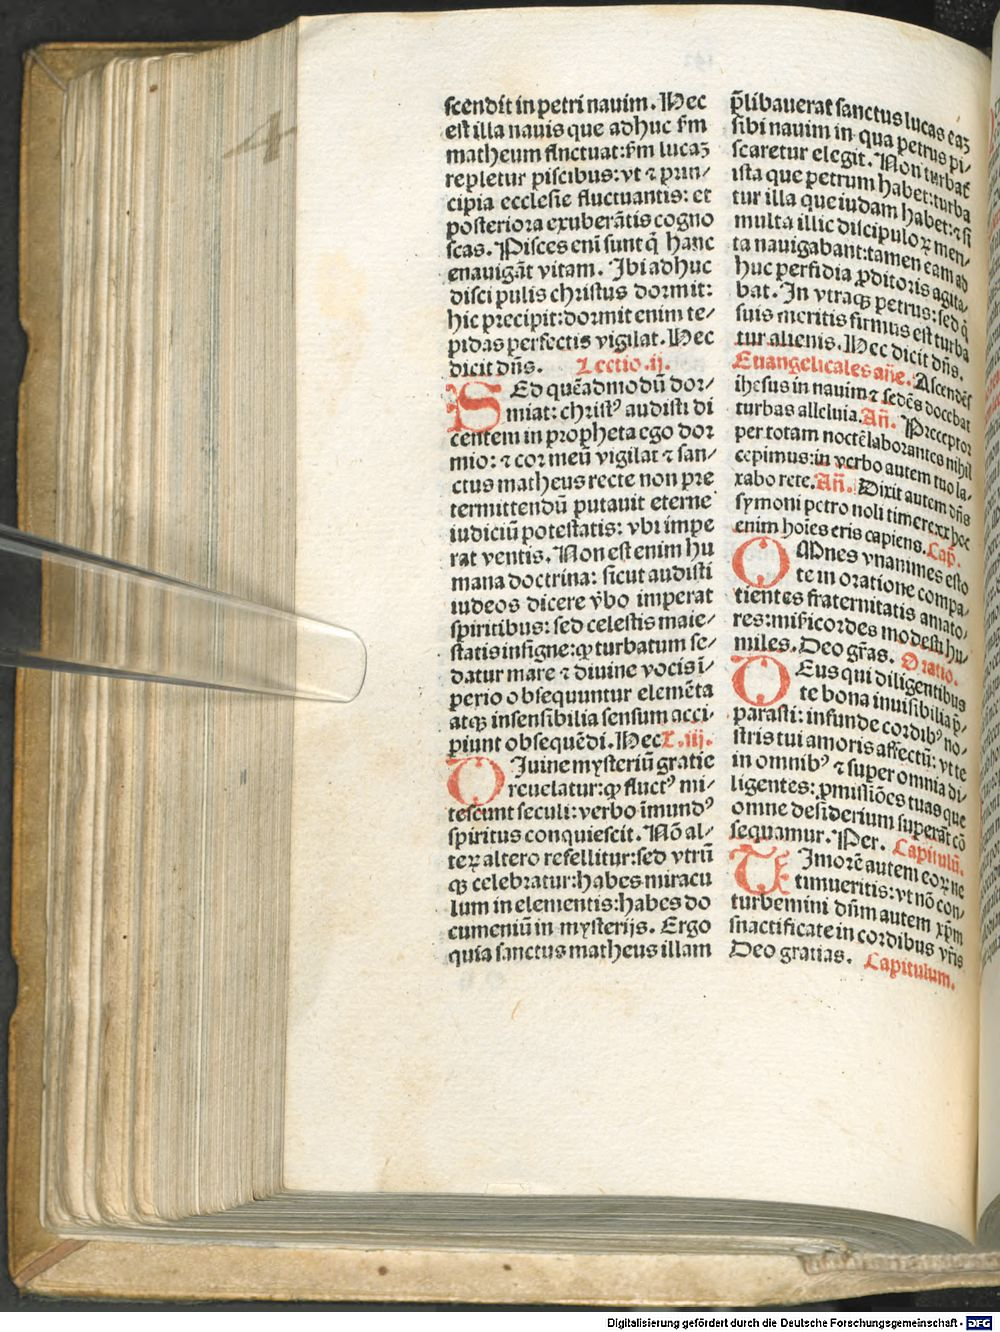 scendit in petri nauim. Hec
est illa nauis que adhuc ẜm
matheum fluctuat: ẜm lucaꝫ
repletur piscibus: vt ⁊ prin⸗
cipia ecclesie fluctuantis: et
posteriora exuberātis cogno
scas. Pisces eni͂ sunt q̇ hanc
enauigāt vitam. Ibi adhuc
disci pulis christus dormit:
hic precipit: dormit enim te⸗
pidas perfectis vigilat. Hec
dicit dn̄s. Lectio .ij.
SEd quēadmodū dor⸗
miat: christꝰ audisti di
centem in propheta ego dor
mio: ⁊ cor meū vigilat ⁊ san⸗
ctus matheus recte non pre
termittendū putauit eterne
iudiciū potestatis: vbi impe
rat ventis. Non est enim hu
mana doctrina: sicut audisti
iudeos dicere v̓bo imperat
spiritibus: sed celestis maie⸗
statis insigne: ꝙ turbatum se⸗
datur mare ⁊ diuine vocis ī⸗
perio obsequuntur elemēta
atqꝫ insensibilia sensum acci⸗
piunt obsequēdi. Hec L. iij.
DIuine mysteriū gratie
reuelatur: ꝙ fluctꝰ mi⸗
tescunt seculi: verbo īmundꝰ
spiritus conquiescit. Nō al⸗
teꝝ altero refellitur: sed vtrū
qꝫ celebratur: habes miracu
lum in elementis: habes do
cumeniū in mysterijs. Ergo
quia sanctus matheus illam
p̄libauerat sanctus lucas eaꝫ
sibi nauim in qua petrus pi⸗
scaretur elegit. Non turbat̄
ista que petrum habet: turba
tur illa que iudam habet: ⁊ si
multa illic discipuloꝝ men⸗
ta nauigabant: tamen eam ad
huc perfidia ꝓditoris agita⸗
bat. In vtraqꝫ petrus: sed q̇
suis meritis firmus est turba
tur alienis. Hec dicit dn̄s.
Euangelicales añe. Ascendēs
ihesus in nauim ⁊ sedēs docebat
turbas alleluia. Añ. Preceptor
per totam noctē laborantes nihil
cepimus: in verbo autem tuo la⸗
xabo rete. Añ. Dixit autem dn̄s
symoni petro noli timere: ex hoc
enim hoīes eris capiens. Cap̄.
OMnes vnanimes esto
te in oratione compa⸗
tientes fraternitatis amato⸗
res: misericordes modesti hu⸗
miles. Deo gr̄as. Oratio.
DEus qui diligentibus
te bona inuisibilia p̄⸗
parasti: infunde cordibꝰ no⸗
stris tui amoris affectū: vt te
in omnibꝰ ⁊ super omnia di⸗
ligentes: ꝓmissiōes tuas que
omne desiderium superāt cō
sequamur. Per. Capitulū.
TImorē autem eoꝝ ne
timueritis: vt nō con⸗
turbemini dn̄m autem xp̄m
snactificate in cordibus vr̄is
Deo gratias. Capitulum.
Digitalisierung gefördert durch die Deutsche Forschungsgemeinschaft - DFG